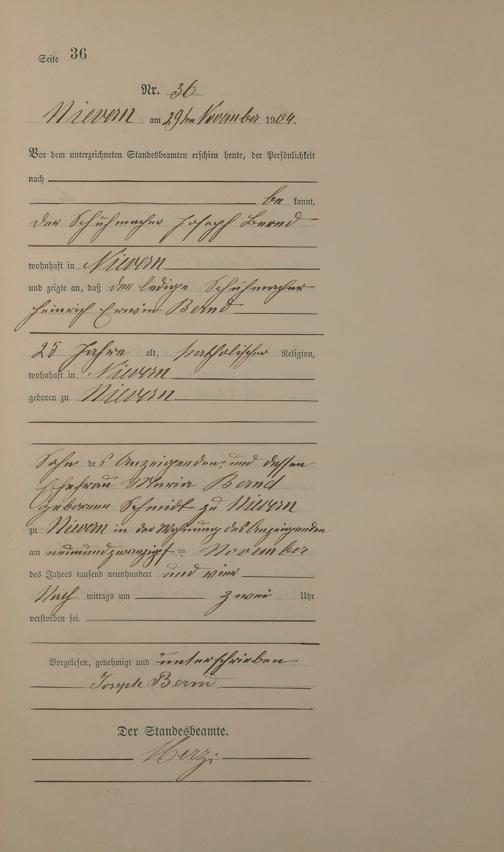 Seite 36
Nr. 36
Nievern am 29ten November 1904.
Vor dem unterzeichneten Standesbeamten erschien heute, der Persönlichkeit
nach
be kannt,
der Schuhmacher Joseph Bernd
wohnhaft in Nievern
und zeigte an, daß der ledige Schuhmacher
Heinrich Erwin Bernd
25 Jahre alt, katholischer Religion,
wohnhaft in Nievern
geboren zu Nievern
Sohn des Anzeigenden und dessen
Ehefrau Maria Bernd
geborene Schmidt zu Nievern
zu Nievern in der Wohnung des Anzeigenden
am neunundzwanzigst = November
des Jahres tausend neunhundert und vier
Nach mittags um zwei Uhr
verstorben sei.
Vorgelesen, genehmigt und unterschrieben
Joseph Bernd
Der Standesbeamte.